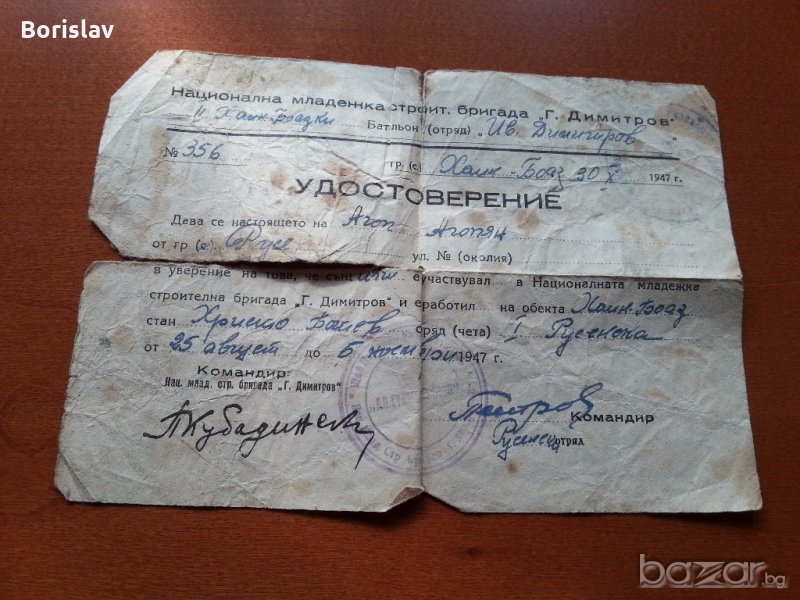 Borislav
Национална младежка строит. бригада „Г. Димитров"
II Хаин-Боазки Батльон (отряд) „Ив. Димитров"
№ 356 гр. (с.) Хаин-Боаз 30 X 1947 г.
УДОСТОВЕРЕНИЕ
Дава се настоящето на Агоп Агопян
от гр (с.) Русе ул. № (околия)
в уверение на това, че същият е участвувал в Националната младежка
строителна бригада „Г. Димитров" и е работил на обекта Хаин-Боаз
стан Христо Ботев отряд (чета) I Русенска
от 25 август до 5 ноември 1947 г.
Командир:
Нац. млад. стр. бригада „Г. Димитров"
Командир
Русенски отряд
bazar.bg